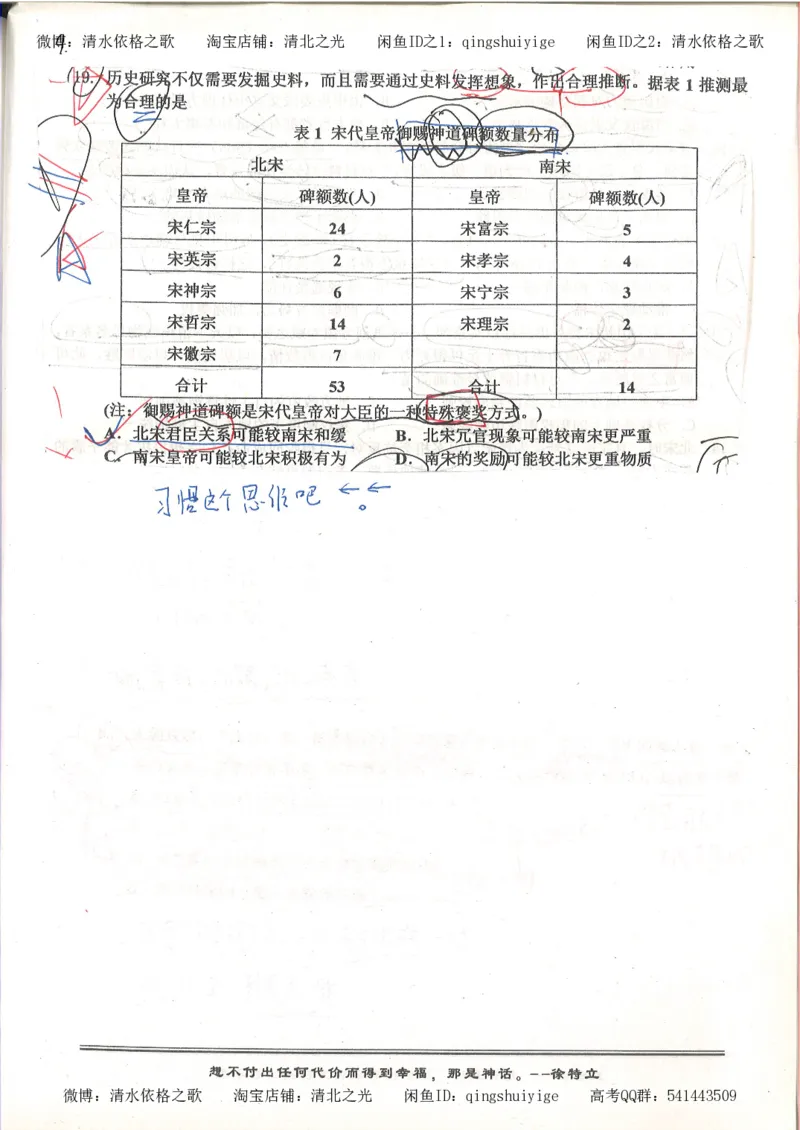 微博：清水依格之歌 淘宝店铺：清北之光 闲鱼ID之1：qingshuiyige 闲鱼ID之2：清水依格之歌
19. 历史研究不仅需要发掘史料，而且需要通过史料发挥想象，作出合理推断。据表 1 推测最
为合理的是
表 1 宋代皇帝御赐神道碑额数量分布
北宋 南宋
皇帝 碑额数(人) 皇帝 碑额数(人)
宋仁宗 24 宋富宗 5
宋英宗 2 宋孝宗 4
宋神宗 6 宋宁宗 3
宋哲宗 14 宋理宗 2
宋徽宗 7
合计 53 合计 14
(注：御赐神道碑额是宋代皇帝对大臣的一种特殊褒奖方式。)
A．北宋君臣关系可能较南宋和缓 B．北宋冗官现象可能较南宋更严重
C．南宋皇帝可能较北宋积极有为 D．南宋的奖励可能较北宋更重物质
习惯这个思维吧 ←←
想不付出任何代价而得到幸福，那是神话。--徐特立
微博：清水依格之歌 淘宝店铺：清北之光 闲鱼ID：qingshuiyige 高考QQ群：541443509